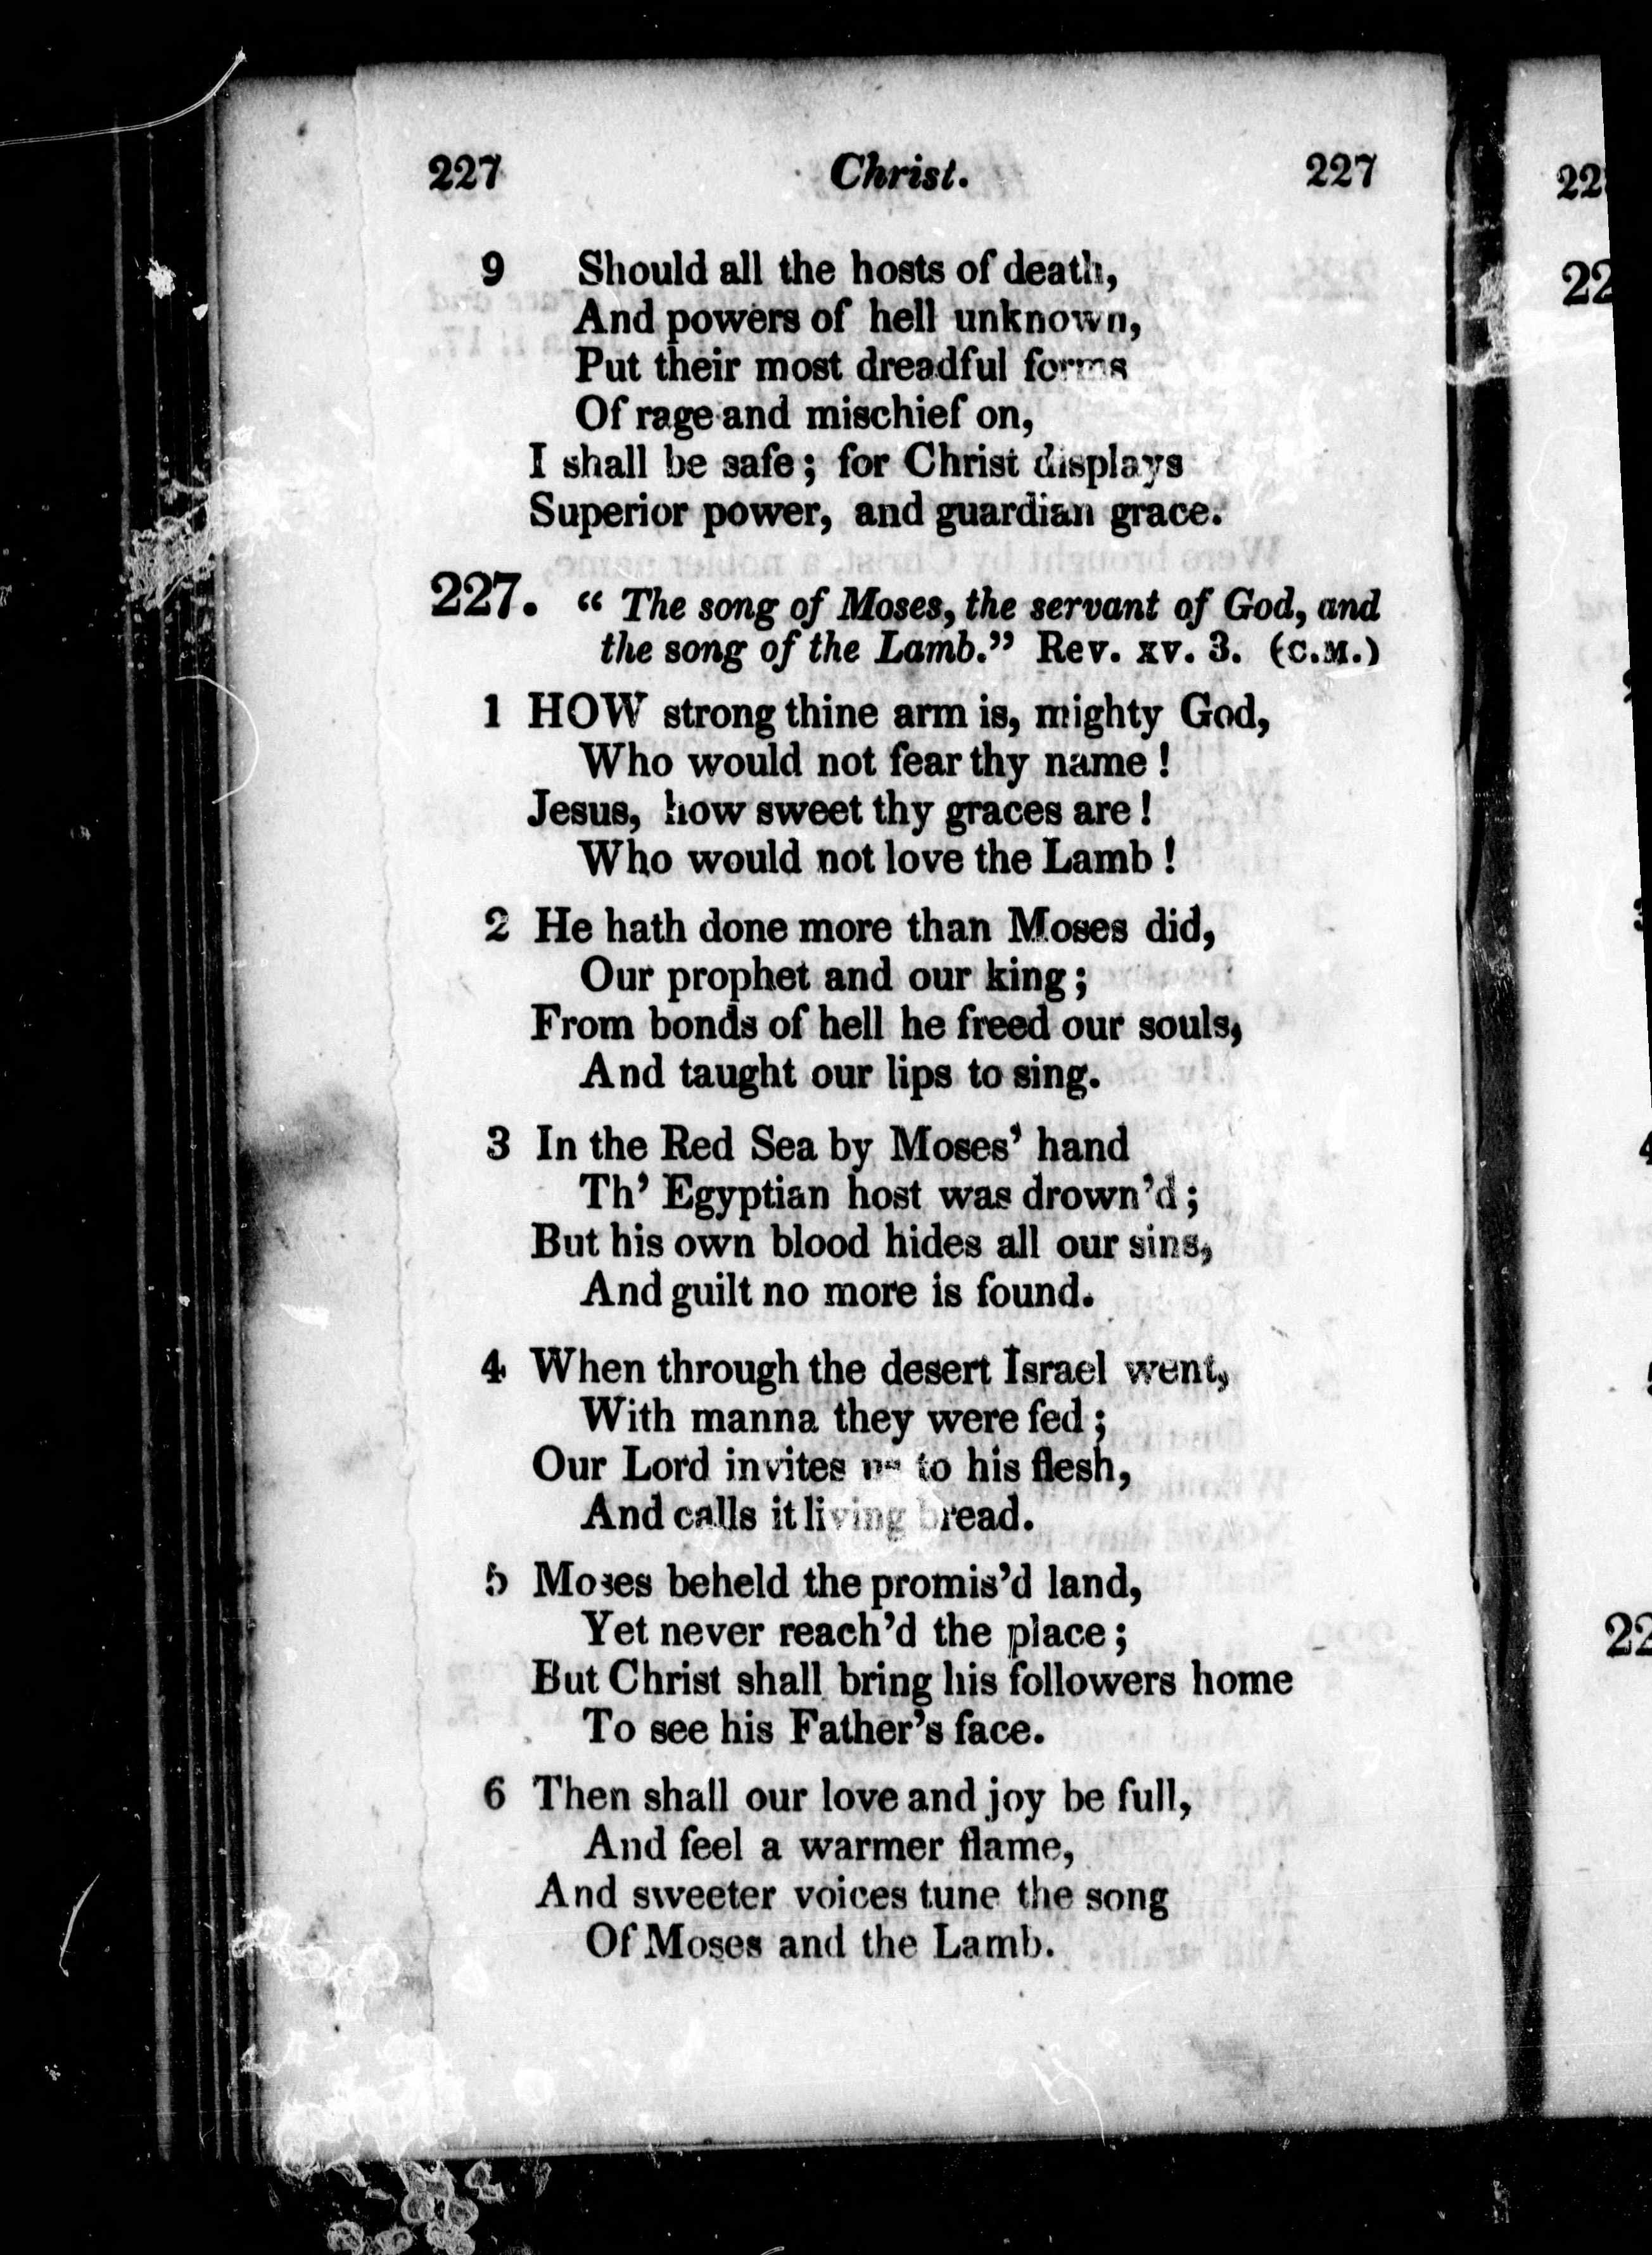 227 Christ. 227
9 Should all the hosts of death,
And powers of hell unknown,
Put their most dreadful forms
Of rage and mischief on,
I shall be safe; for Christ displays
Superior power, and guardian grace.
227. “ The song of Moses, the servant of God, and
the song of the Lamb.” Rev. xv. 3. (C.M.)
1 HOW strong thine arm is, mighty God,
Who would not fear thy name!
Jesus, how sweet thy graces are!
Who would not love the Lamb!
2 He hath done more than Moses did,
Our prophet and our king;
From bonds of hell he freed our souls,
And taught our lips to sing.
3 In the Red Sea by Moses’ hand
Th’ Egyptian host was drown’d;
But his own blood hides all our sins,
And guilt no more is found.
4 When through the desert Israel went,
With manna they were fed;
Our Lord invites us to his flesh,
And calls it living bread.
5 Moses beheld the promis’d land,
Yet never reach’d the place;
But Christ shall bring his followers home
To see his Father’s face.
6 Then shall our love and joy be full,
And feel a warmer flame,
And sweeter voices tune the song
Of Moses and the Lamb.